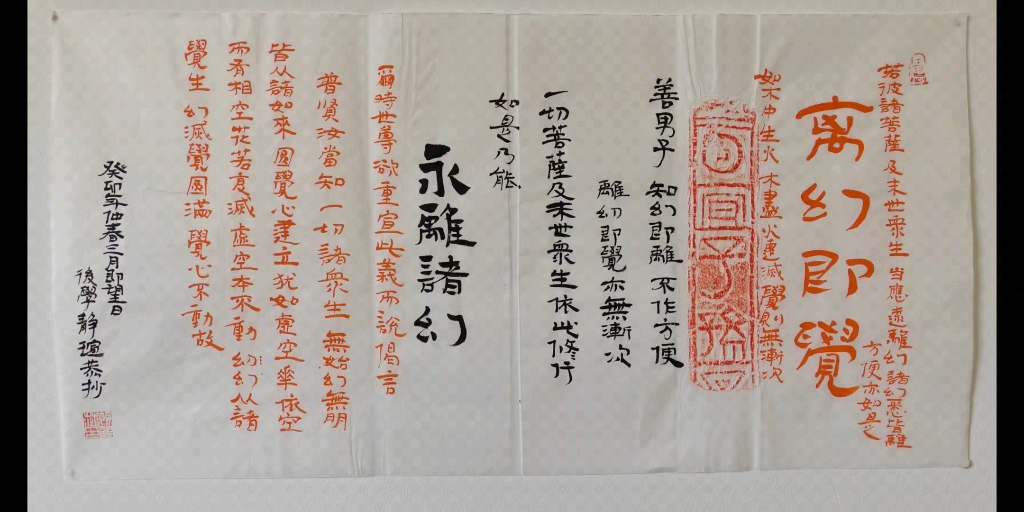 若彼諸菩薩及末世衆生當應遠離幻諸幻悉皆離
离幻即覺
方便亦如是
如木中生火木盡火還滅覺則無漸次
善男子知幻即離不作方便
離幻即覺亦無漸次
一切菩薩及末世衆生依此修行
如是乃能
永離諸幻
爾時世尊欲重宣此義而說偈言
普賢汝當知一切諸衆生無始幻無明
皆从諸如來圓覺心建立犹如虛空華依空
而有相空花若复滅虛空本不動幻从諸
覺生幻滅覺圓滿覺心不動故
癸卯年仲春三月即望日
後學靜 恭抄